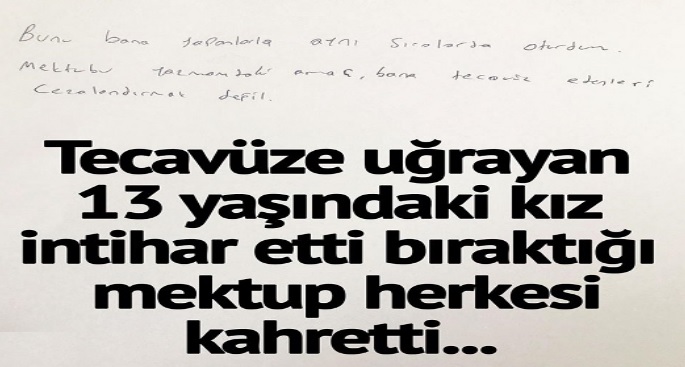 Bunu bana yapanlarla aynı sıralarda oturdum.
Mektubu yazmamdaki amaç, bana tecavüz edenleri
cezalandırmak değil.
Tecavüze uğrayan
13 yaşındaki kız
intihar etti bıraktığı
mektup herkesi
kahretti...